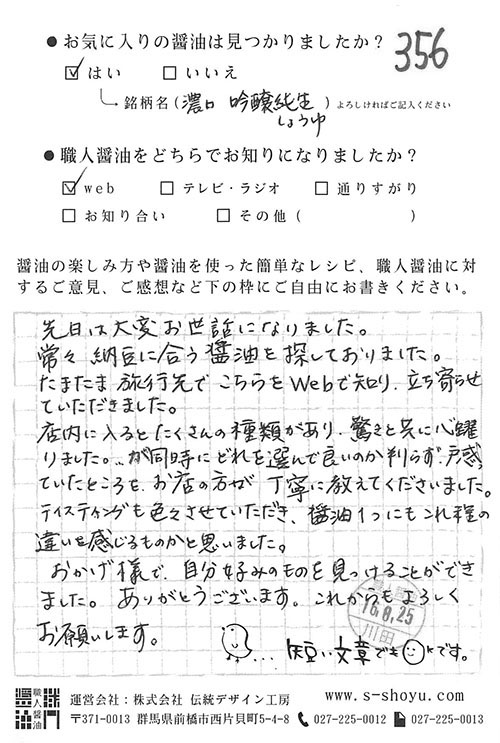 ●お気に入りの醤油は見つかりましたか？ 356
☑はい □いいえ
銘柄名(濃口 吟醸純生しょうゆ) よろしければご記入ください
●職人醤油をどちらでお知りになりましたか？
☑web □テレビ・ラジオ □通りすがり
□お知り合い □その他( )
醤油の楽しみ方や醤油を使った簡単なレシピ、職人醤油に対
するご意見、ご感想など下の枠にご自由にお書きください。
先日は大変お世話になりました。
常々 納豆に合う醤油を探しておりました。
たまたま旅行先でこちらをWebで知り、立ち寄らせ
ていただきました。
店内に入るとたくさんの種類があり、驚きと共に心躍
りました。..が同時にどれを選んで良いのか判らず、戸惑っ
ていたところを、お店の方が丁寧に教えてくださいました。
テイスティングも色々させていただき、醤油1つにもこれ程の
違いを感じるものかと思いました。
おかげ様で、自分好みのものを見つけることができ
ました。ありがとうございます。これからもよろしく
お願いします。
16.8.25
川田
...短い文章でき です。
職人醤油
運営会社：株式会社 伝統デザイン工房 www.s-shoyu.com
〒371-0013 群馬県前橋市西片貝町5-4-8 027-225-0012 027-225-0013